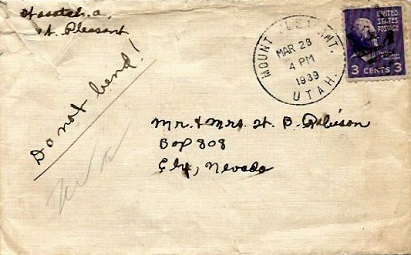 Mt. Pleasant
Do not bend!
MOUNT PLEASANT.
MAR 28
4 PM
1939
UTAH.
UNITED STATES
POSTAGE
3 CENTS 3
Mr. & Mrs. H. B.
Box 303
Ely, Nevada